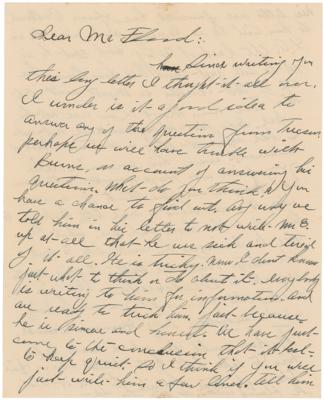 Dear Mr Flood:
Since writing you
this long letter I thought it all over.
I wonder is it a good idea to
answer any of the questions from Tucson
perhaps we will have trouble with
Burns, on account of answering his
questions. What do you think, if you
have a chance to find out. Any way we
told him in his letter to not write Mr E.
up at all that he was sick and tired
of it all. He is tricky. Now I dont know
just what to think or do about it. Everybody
is writing to him for information. and
are ready to trick him. just because
he is sincere and honest. We have just
come to the conclusion that its best
to keep quiet. So I think if you will
just write him a few lines. tell him